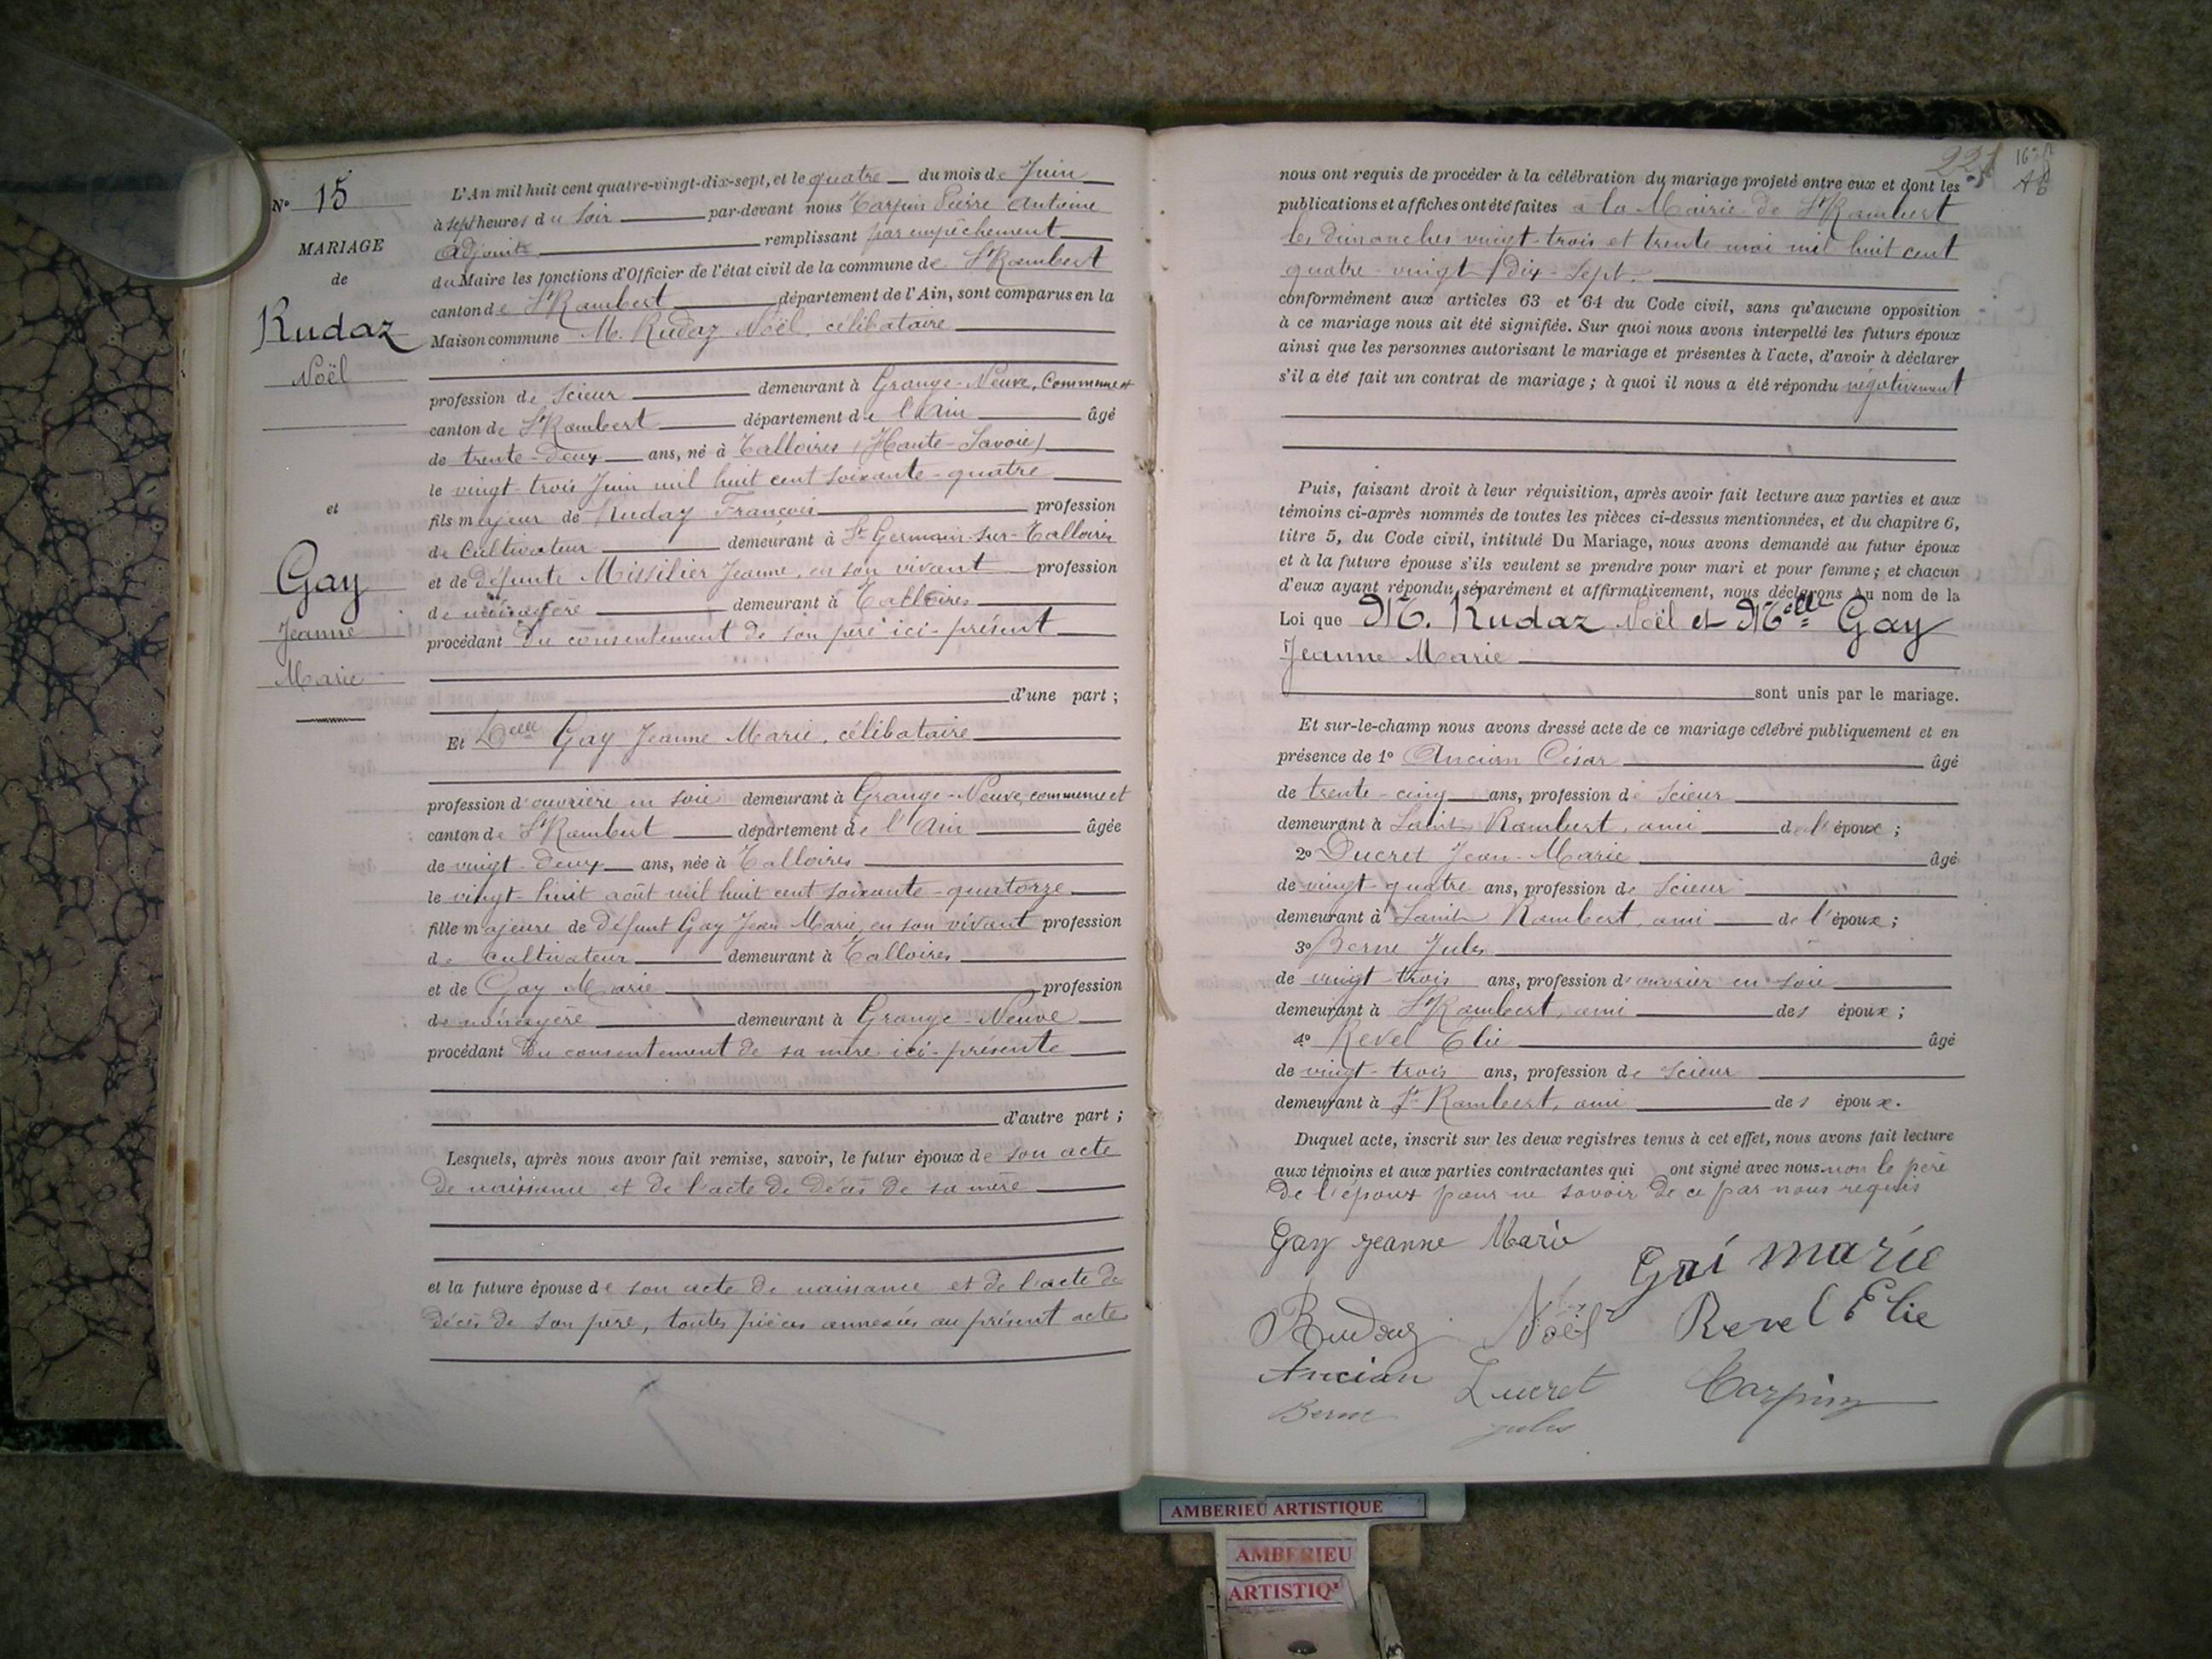 N° 15
MARIAGE
de
Rudaz
Noël
et
Gay
Jeanne
Marie
L'An mil huit cent quatre-vingt-dix-sept, et le quatre du mois de Juin
à sept heures du soir par-devant nous Tarpin Pierre Antoine
Adjoint remplissant par empêchement
du Maire les fonctions d'Officier de l'état civil de la commune de St Rambert
canton de St Rambert département de l'Ain, sont comparus en la
Maison commune M. Rudaz Noël, célibataire
profession de scieur demeurant à Grange-Neuve, commune et
canton de St Rambert département de l'Ain âgé
de trente-deux ans, né à Talloires (Haute-Savoie)
le vingt-trois Juin mil huit cent soixante-quatre
fils majeur de Rudaz François profession
de cultivateur demeurant à St Germain-sur-Talloires
et de défunte Missilier Jeanne, en son vivant profession
de ménagère demeurant à Talloires
procédant du consentement de son père ici-présent
d'une part ;
Et Delle Gay Jeanne Marie, célibataire
profession d'ouvrière en soie demeurant à Grange-Neuve, commune et
canton de St Rambert département de l'Ain âgée
de vingt-deux ans, née à Talloires
le vingt-huit août mil huit cent soixante-quatorze
fille majeure de défunt Gay Jean-Marie, en son vivant profession
de cultivateur demeurant à Talloires
et de Gay Marie profession
de ménagère demeurant à Grange-Neuve
procédant du consentement de sa mère ici-présente
d'autre part ;
Lesquels, après nous avoir fait remise, savoir, le futur époux de son acte
de naissance et de l'acte de décès de sa mère
et la future épouse de son acte de naissance et de l'acte de
décès de son père, toutes pièces annexées au présent acte
221
nous ont requis de procéder à la célébration du mariage projeté entre eux et dont les
publications et affiches ont été faites à la Mairie de St Rambert
les dimanches vingt-trois et trente mai mil huit cent
quatre-vingt-dix-sept.
conformément aux articles 63 et 64 du Code civil, sans qu'aucune opposition
à ce mariage nous ait été signifiée. Sur quoi nous avons interpellé les futurs époux
ainsi que les personnes autorisant le mariage et présentes à l'acte, d'avoir à déclarer
s'il a été fait un contrat de mariage ; à quoi il nous a été répondu négativement
Puis, faisant droit à leur réquisition, après avoir fait lecture aux parties et aux
témoins ci-après nommés de toutes les pièces ci-dessus mentionnées, et du chapitre 6,
titre 5, du Code civil, intitulé Du Mariage, nous avons demandé au futur époux
et à la future épouse s'ils veulent se prendre pour mari et pour femme ; et chacun
d'eux ayant répondu séparément et affirmativement, nous déclarons Au nom de la
Loi que M. Rudaz Noël et Melle Gay
Jeanne Marie
sont unis par le mariage.
Et sur-le-champ nous avons dressé acte de ce mariage célébré publiquement et en
présence de 1° Ancian César âgé
de trente-cinq ans, profession de scieur
demeurant à Saint Rambert, ami de l'époux ;
2° Ducret Jean-Marie âgé
de vingt-quatre ans, profession de scieur
demeurant à Saint Rambert, ami de l'époux ;
3° Berne Jules
de vingt-trois ans, profession d'ouvrier en soie
demeurant à St Rambert, ami des époux ;
4° Revel Elie âgé
de vingt-trois ans, profession de scieur
demeurant à St Rambert, ami des époux.
Duquel acte, inscrit sur les deux registres tenus à cet effet, nous avons fait lecture
aux témoins et aux parties contractantes qui ont signé avec nous non le père
de l'époux pour ne savoir de ce par nous requis
Gay Jeanne Marie
Gai marie
Rudaz Noël Revel Elie
Ancian Ducret Tarpin
Berne jules
AMBERIEU ARTISTIQUE
AMBERIEU
ARTISTIQ